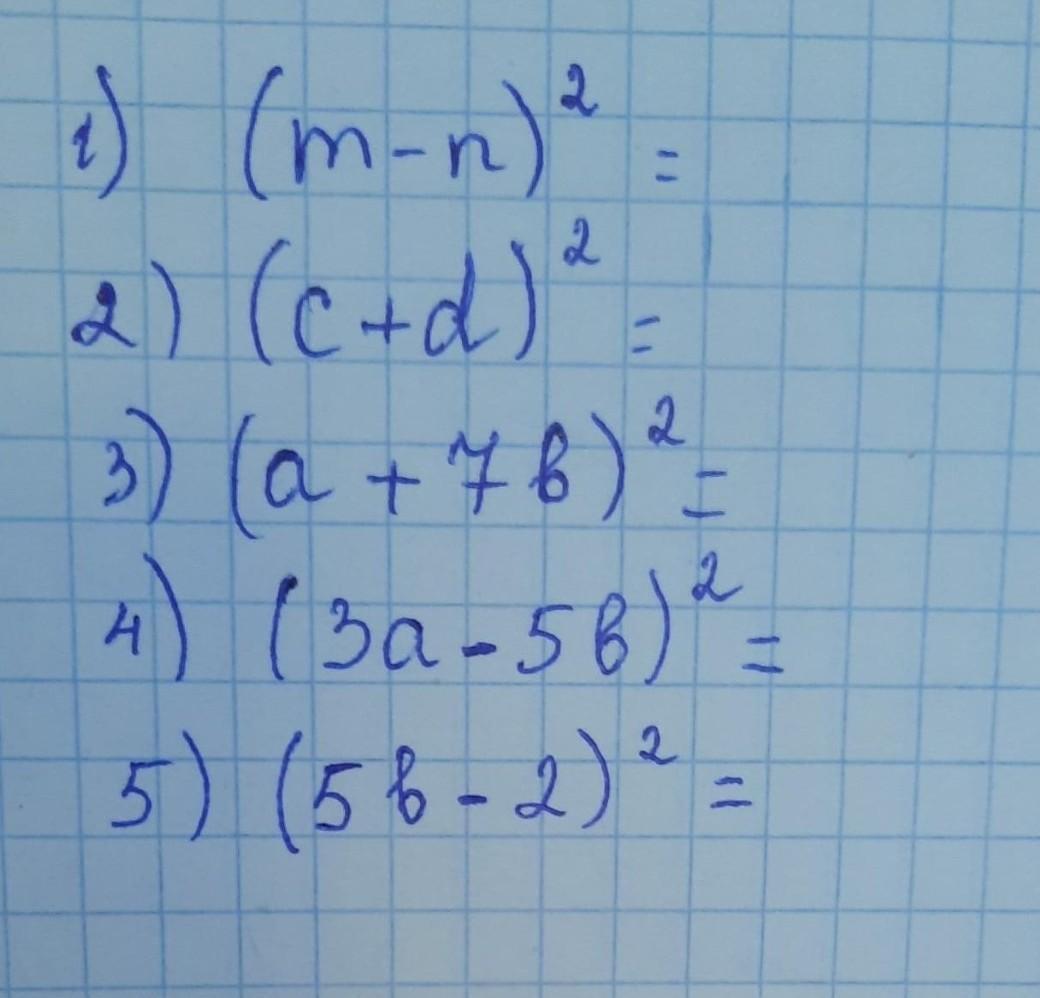 1) (m-n)² =
2) (c+d)² =
3) (a + 7b)² =
4) (3a - 5b)² =
5) (5b - 2)² =